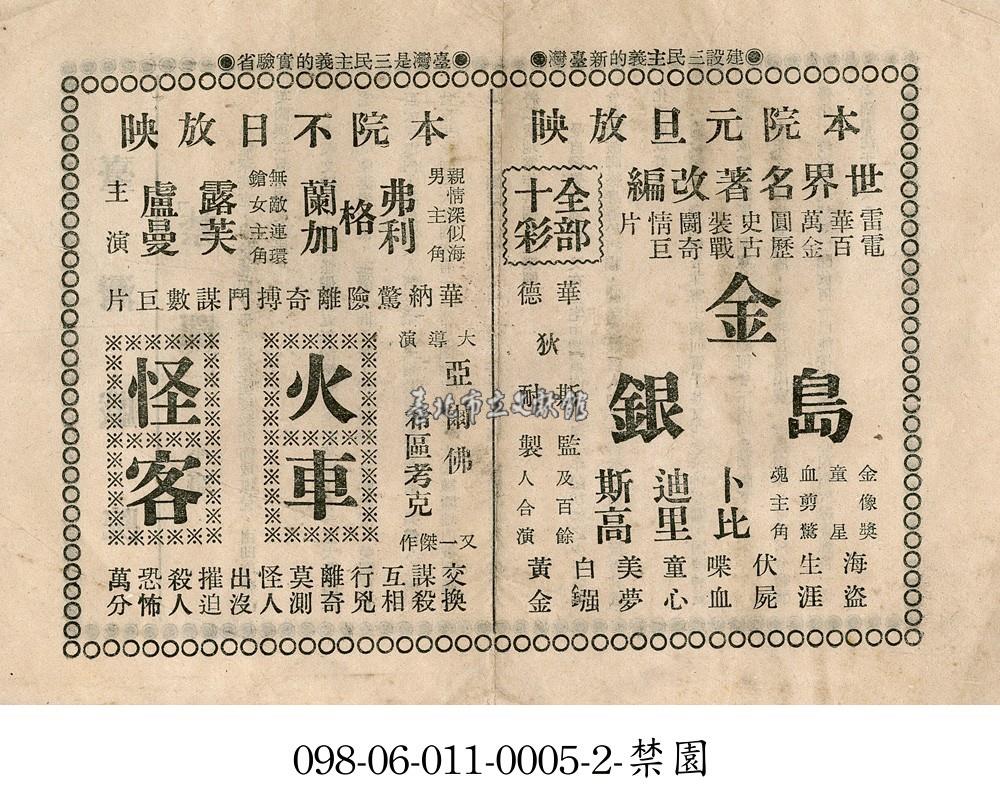 ●建設三民主義的新臺灣●
本院元旦放映
世界名著改編
雷電華百萬金圓歷史古裝戰鬪奇情巨片
全部
十彩
金銀島
華德狄斯耐監製
及百餘人合演
金像獎童星
血剪驚魂主角
卜比迪里斯高
海盜生涯
伏屍喋血
童心美夢
白鏹黃金
●臺灣是三民主義的實驗省●
本院不日放映
親情深似海男主角
弗利格蘭加
無敵連環鎗女主角
露芙盧曼
主演
華納驚險離奇搏鬥謀數巨片
大導演
亞爾佛
稀區考克
又一傑作
火車
怪客
交換謀殺
互相行兇
離奇莫測
怪人出沒
摧迫殺人
恐怖萬分
臺北市立文獻館
098-06-011-0005-2-禁園